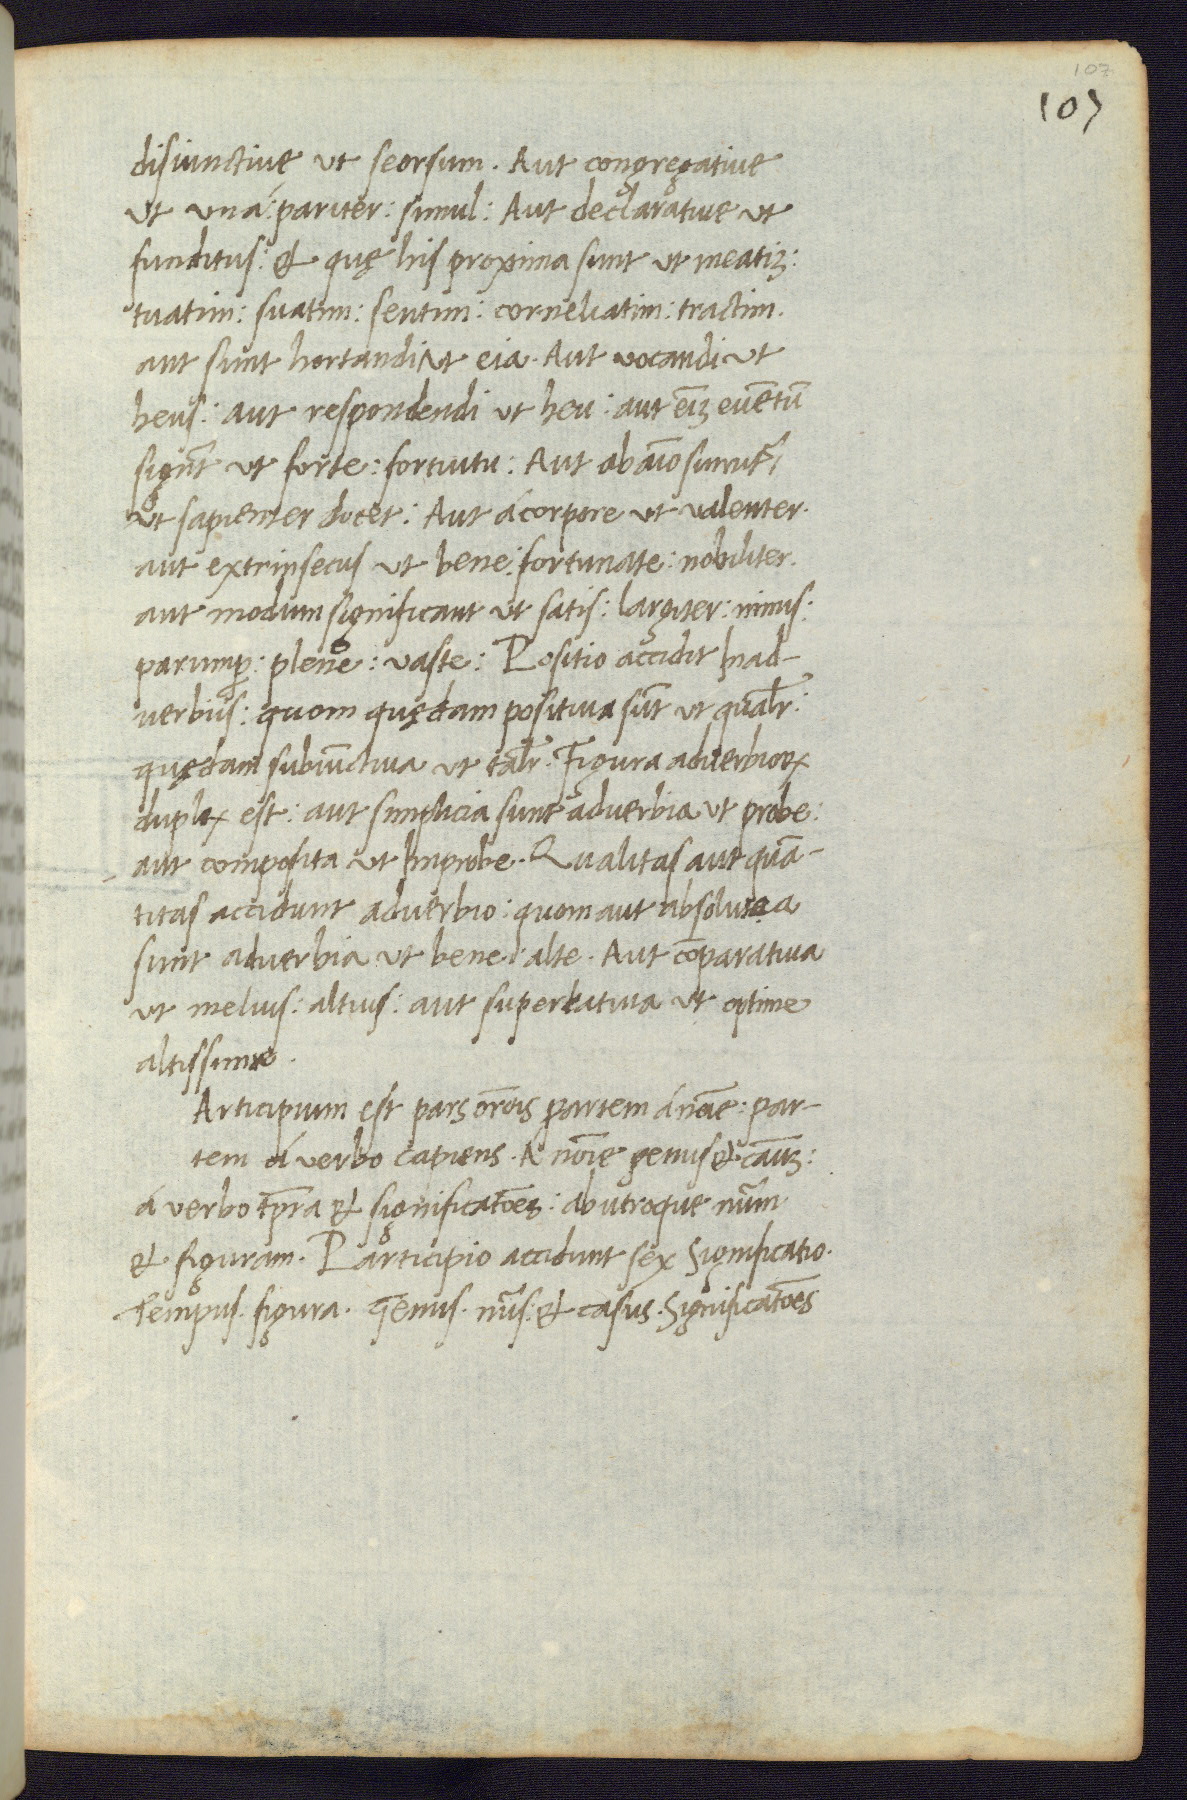 107
107
disiunctiue ut seorsum. Aut congregatiue
ut una: pariter: simul: Aut declaratiue ut
funditus: & quę his proxima sunt ut meatiȝ:
tuatim: suatim: sentim: corneliatim: tractim.
aut sunt hortandi ut eia. Aut uocandi ut
heus: aut respondendi ut heu: aut eīȝ euētū
signt̄ ut forte: fortuitu: Aut ab aīo sumūt̄
ut sapienter docet: Aut á corpore ut ualenter.
aut extrinsecus ut bene: fortunate: nobiliter.
aut modum significant ut satis: largiter: nimis:
parump̱: plene: uaste: Positio accidit Inad-
uerbiis: quom quędam positiua sūt ut qual̄r:
quędam subiūctiua ut tal̄r. Figura aduerbioꝝ
duplex est: aut simplicia sunt aduerbia ut probe:
aut composita ut Improbe. Qualitas aut quā-
titas accidunt aduerbio: quom aut absoluta a
sunt aduerbia ut bene: alte. Aut cōparatiua
ut melius: altius: aut superlatiua ut optime
altissime.
Articipium est pars orōis partem á nōīe: par-
tem á verbo capiens. A nōīe genus & cauȝ:
á verbo tp̄ra & significatōeȝ: ab utroque nūm
& figuram. Participio accidunt sex Significatio.
Tempus. figura. Genus. nūs. & casus. Significatōes